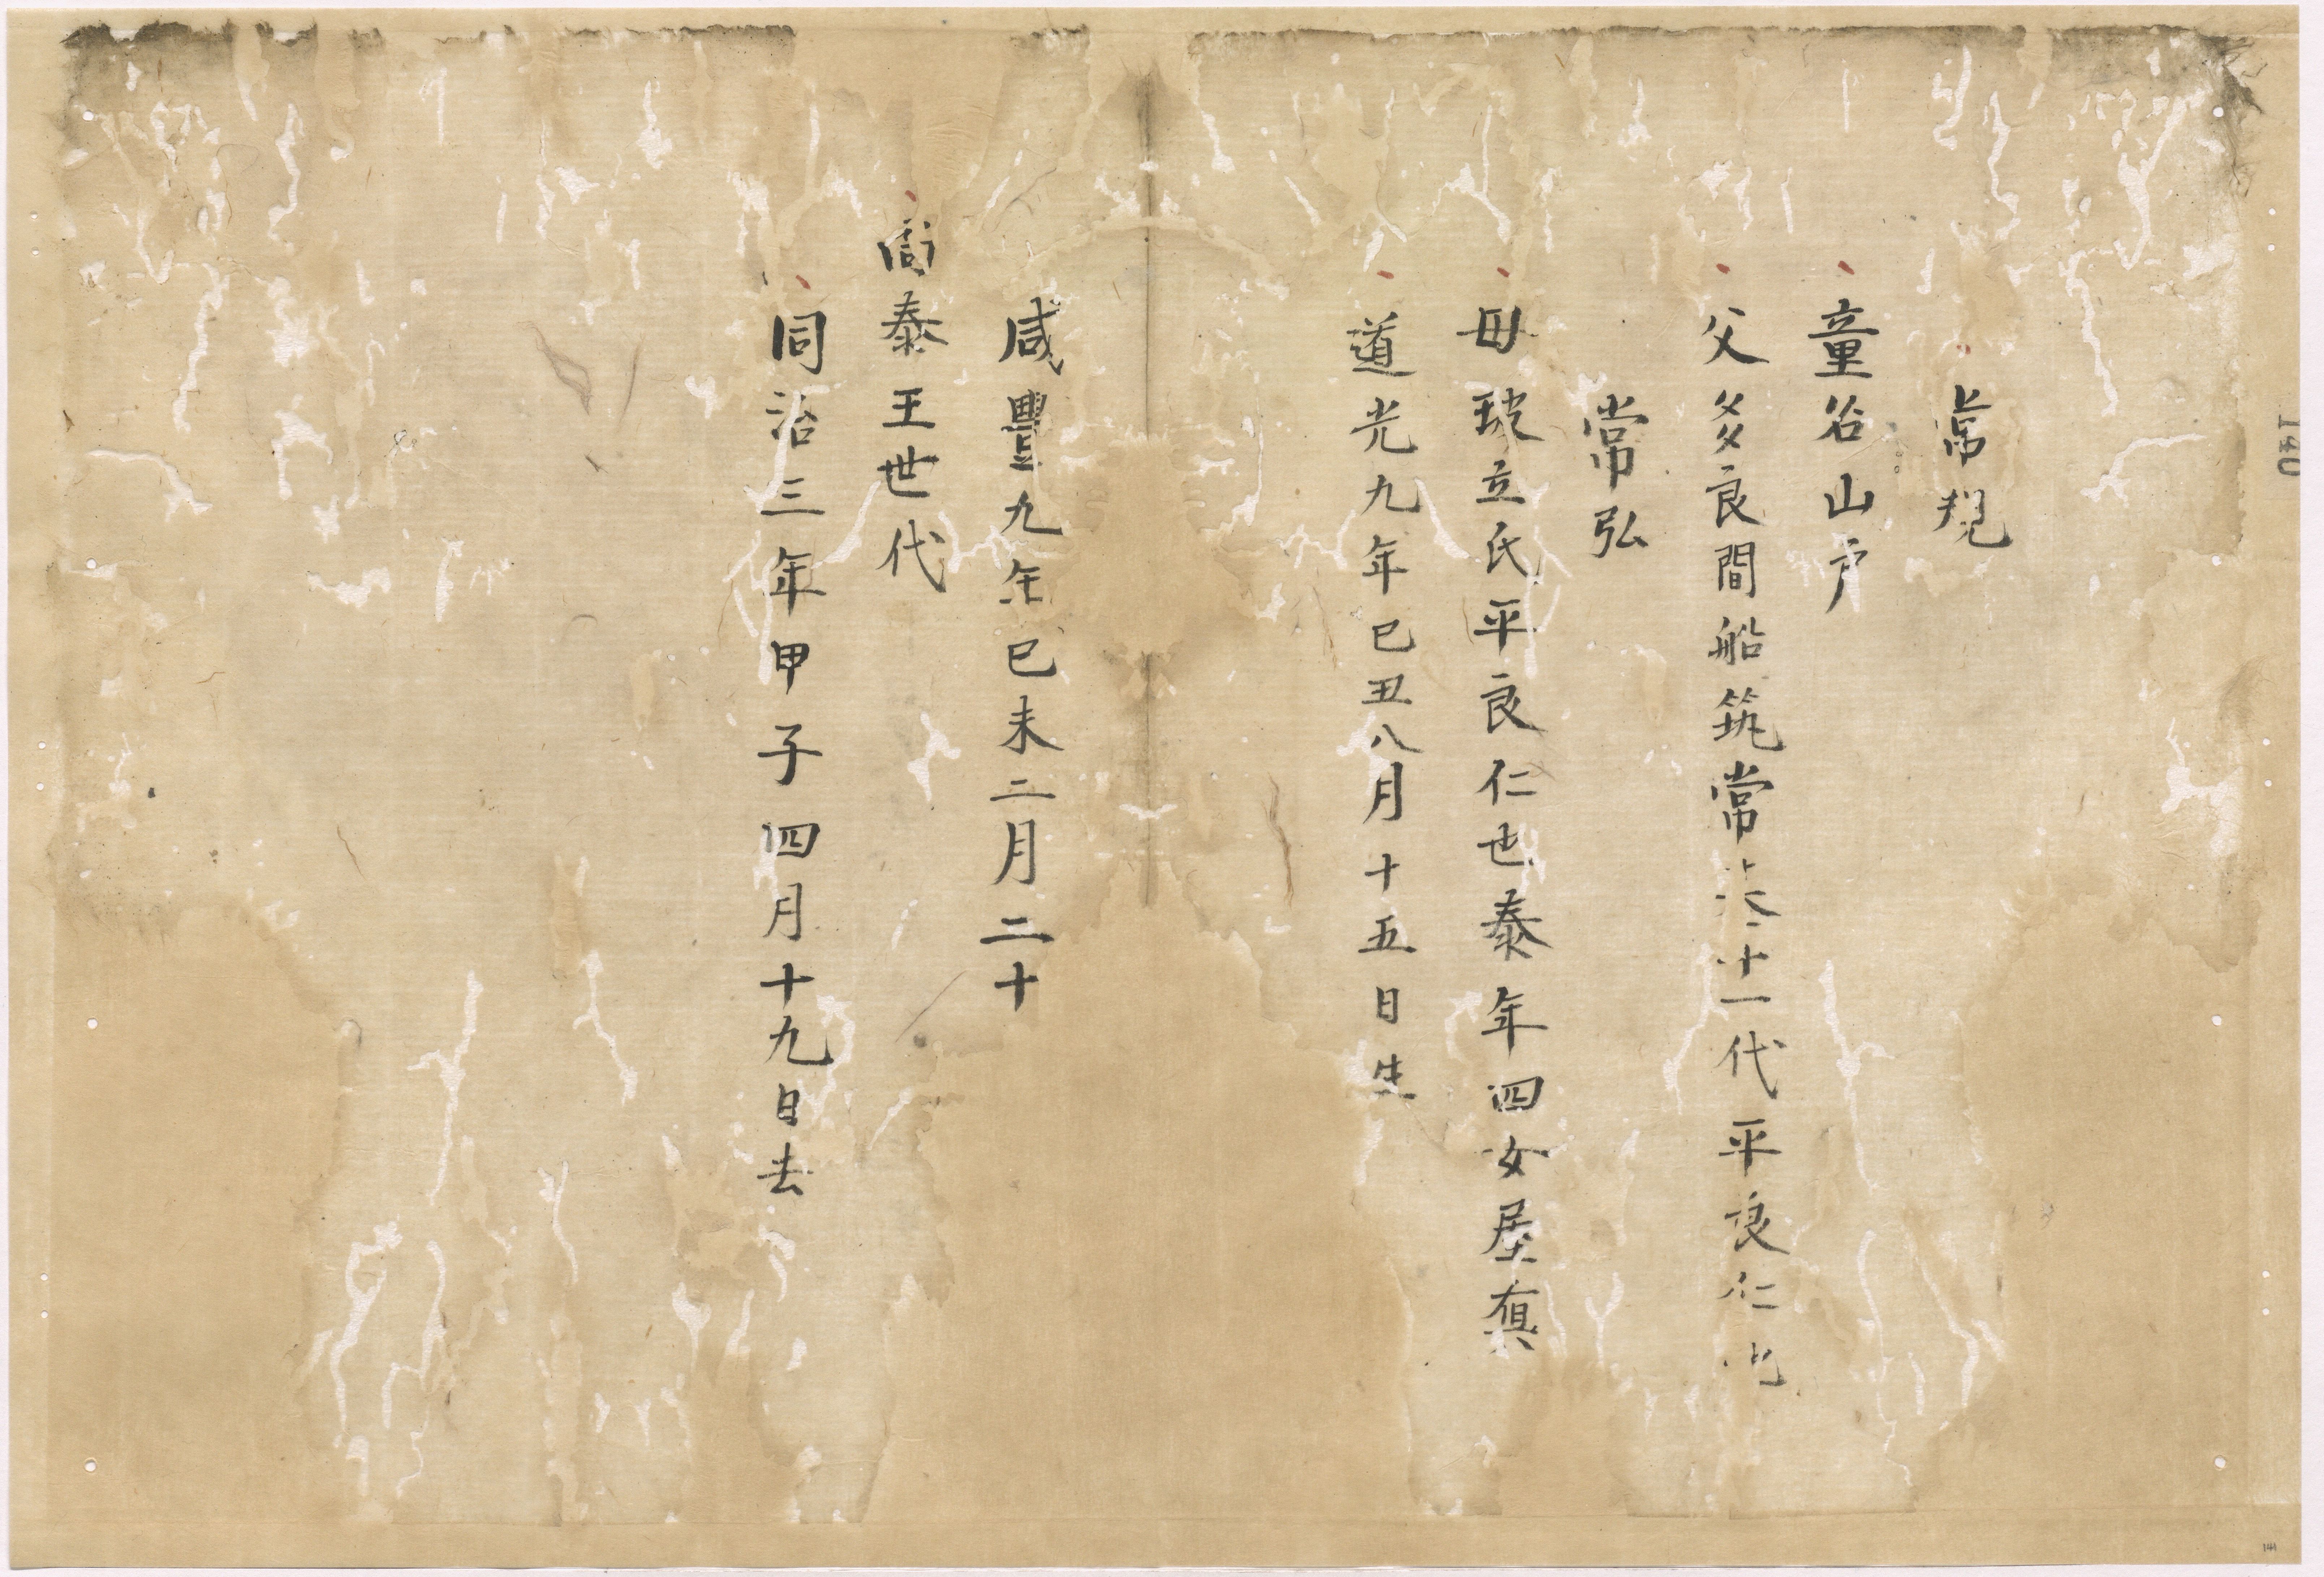 常規
童名山戸
父多良間船筑常茂十一代平良仁也
常弘
母琉立氏平良仁也泰年四女屋真
道光九年己丑八月十五日生
咸豐九年己未三月二十
尚泰王世代
同治三年甲子四月十九日去
140
141